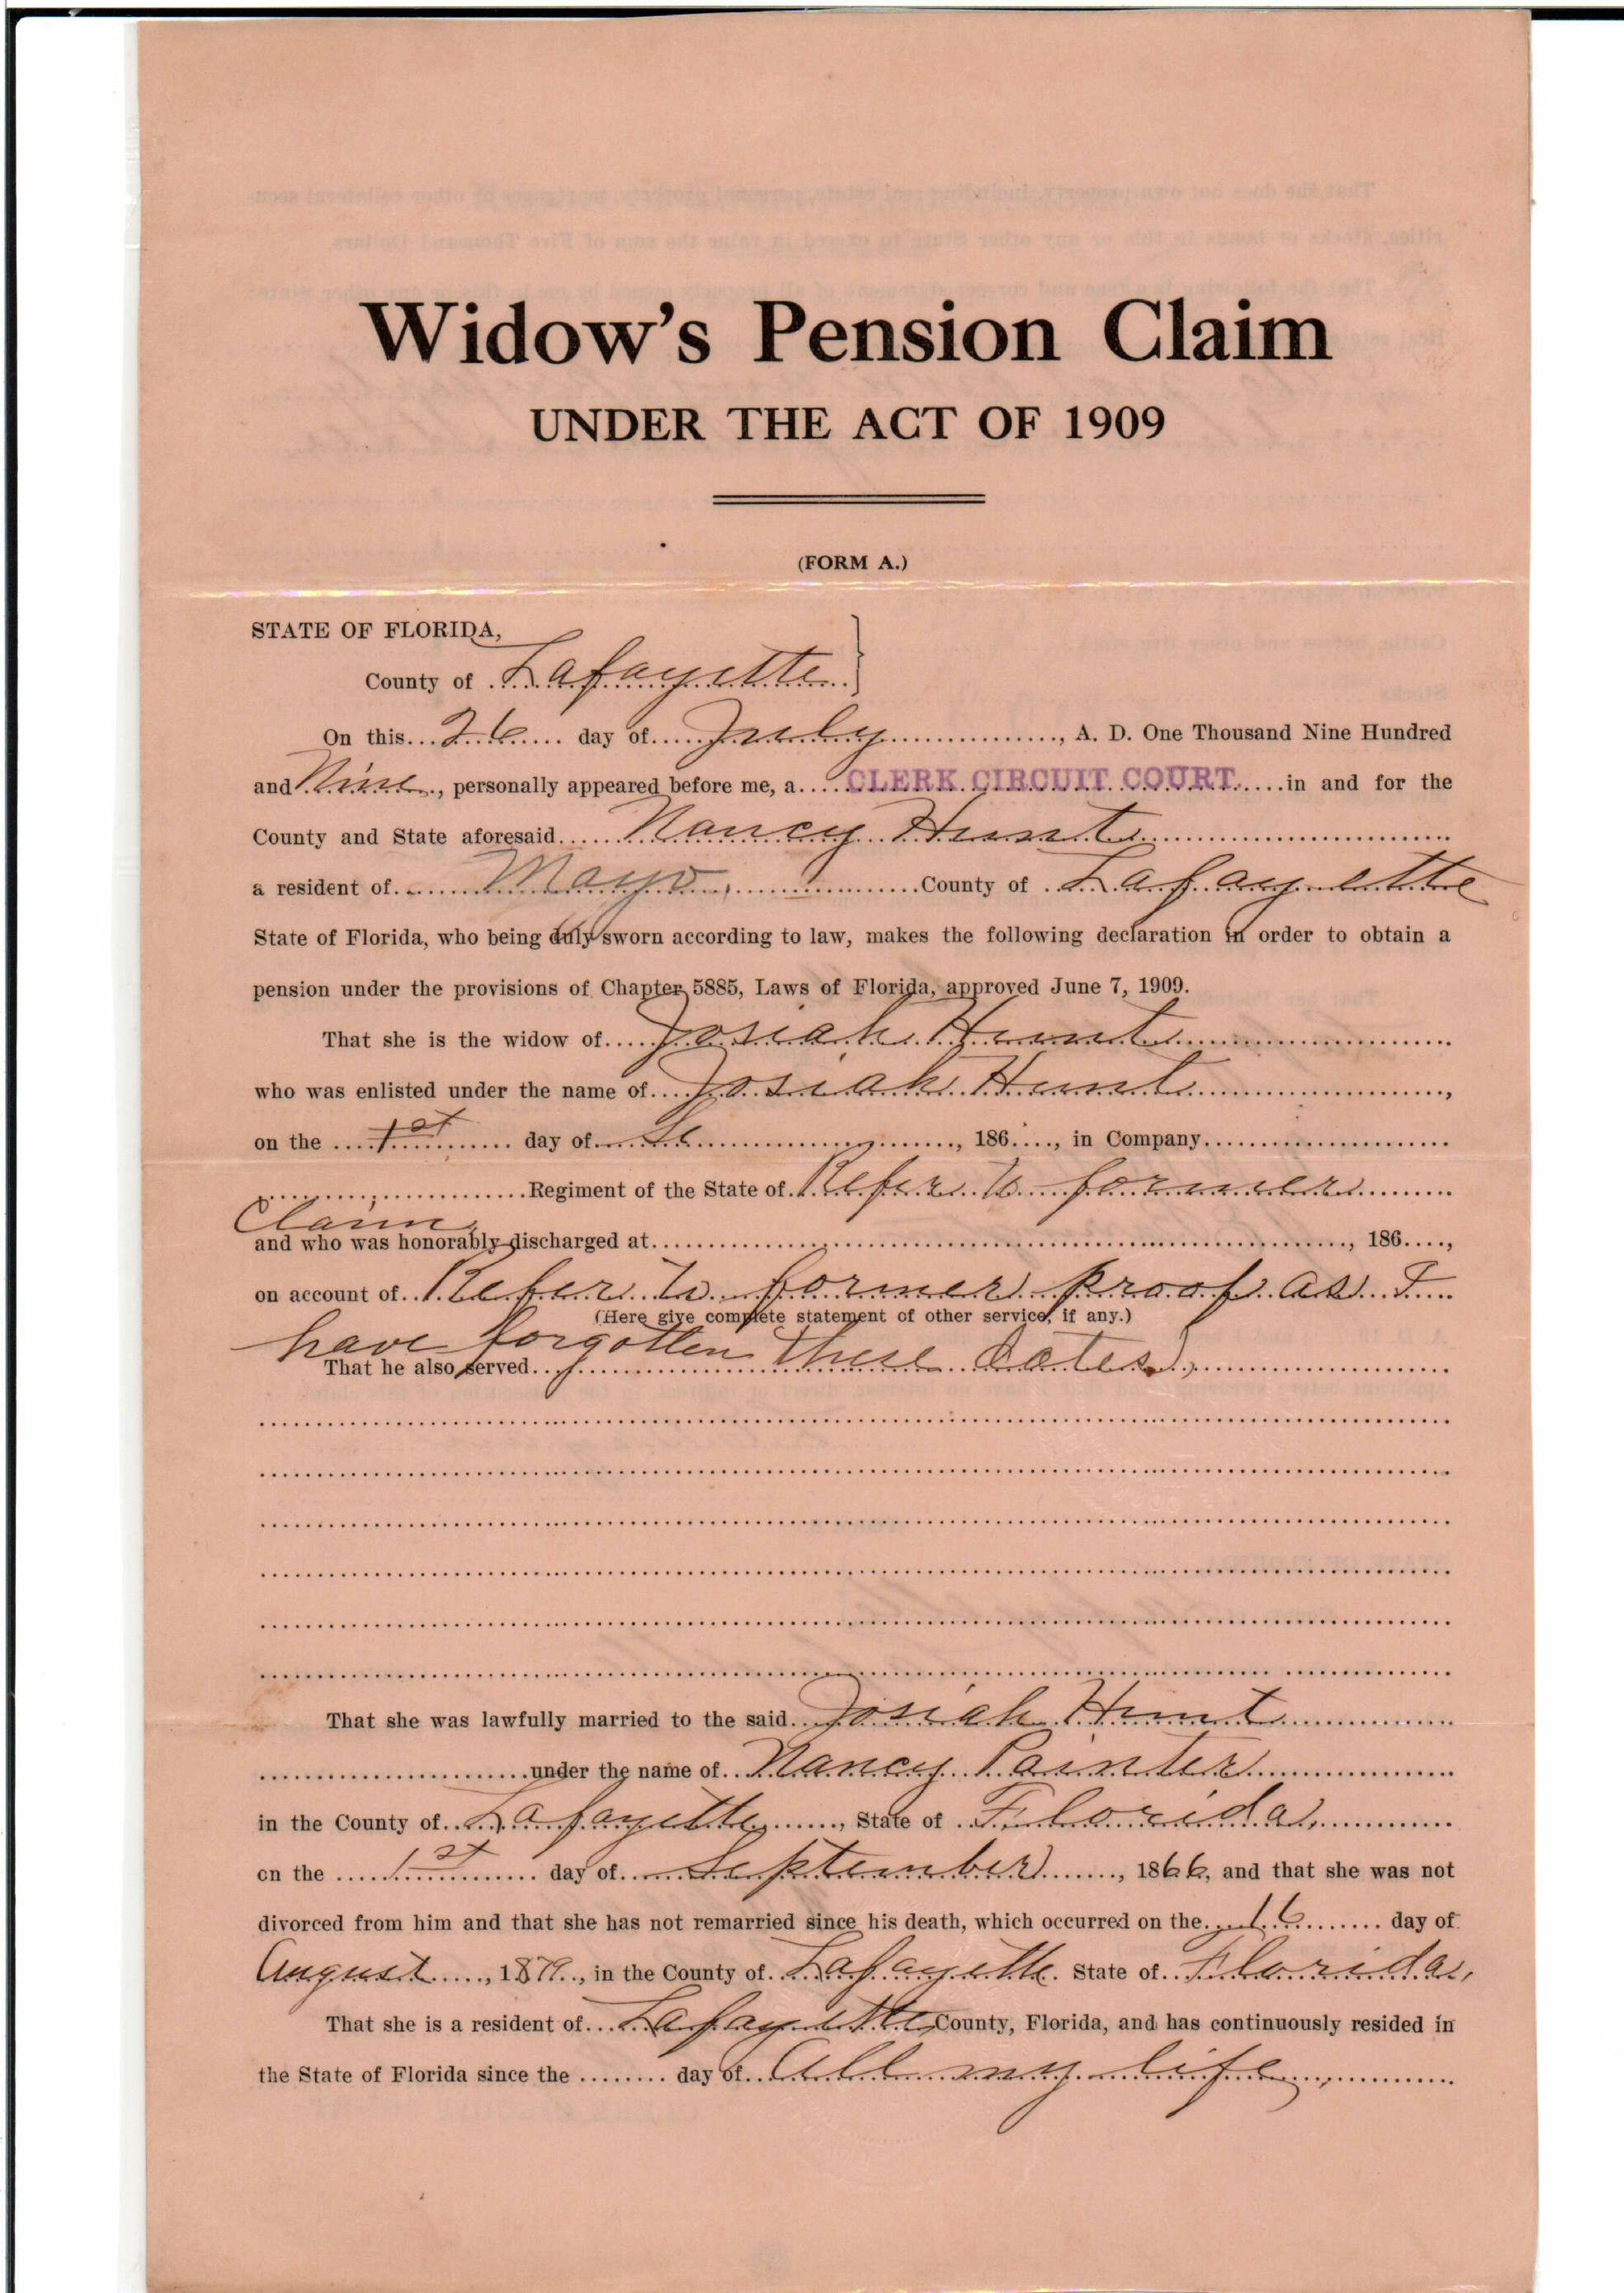 Widow's Pension Claim
UNDER THE ACT OF 1909
(FORM A.)
STATE OF FLORIDA,
County of Lafayette
On this 26 day of July, A. D. One Thousand Nine Hundred
and Nine, personally appeared before me, a CLERK CIRCUIT COURT in and for the
County and State aforesaid Nancy Hunt
a resident of Mayo, County of Lafayette
State of Florida, who being duly sworn according to law, makes the following declaration in order to obtain a
pension under the provisions of Chapter 5885, Laws of Florida, approved June 7, 1909.
That she is the widow of Josiah Hunt
who was enlisted under the name of Josiah Hunt,
on the 1st day of Se, 186, in Company
Regiment of the State of Refer to former
Claim
and who was honorably discharged at, 186,
on account of Refer to former proof as I
(Here give complete statement of other service, if any.)
have forgotten these dates,
That he also served
That she was lawfully married to the said Josiah Hunt
under the name of Nancy Painter
in the County of Lafayette, State of Florida,
on the 1st day of September, 1866, and that she was not
divorced from him and that she has not remarried since his death, which occurred on the 16 day of
August, 1879, in the County of Lafayette State of Florida,
That she is a resident of Lafayette County, Florida, and has continuously resided in
the State of Florida since the day of All my life,